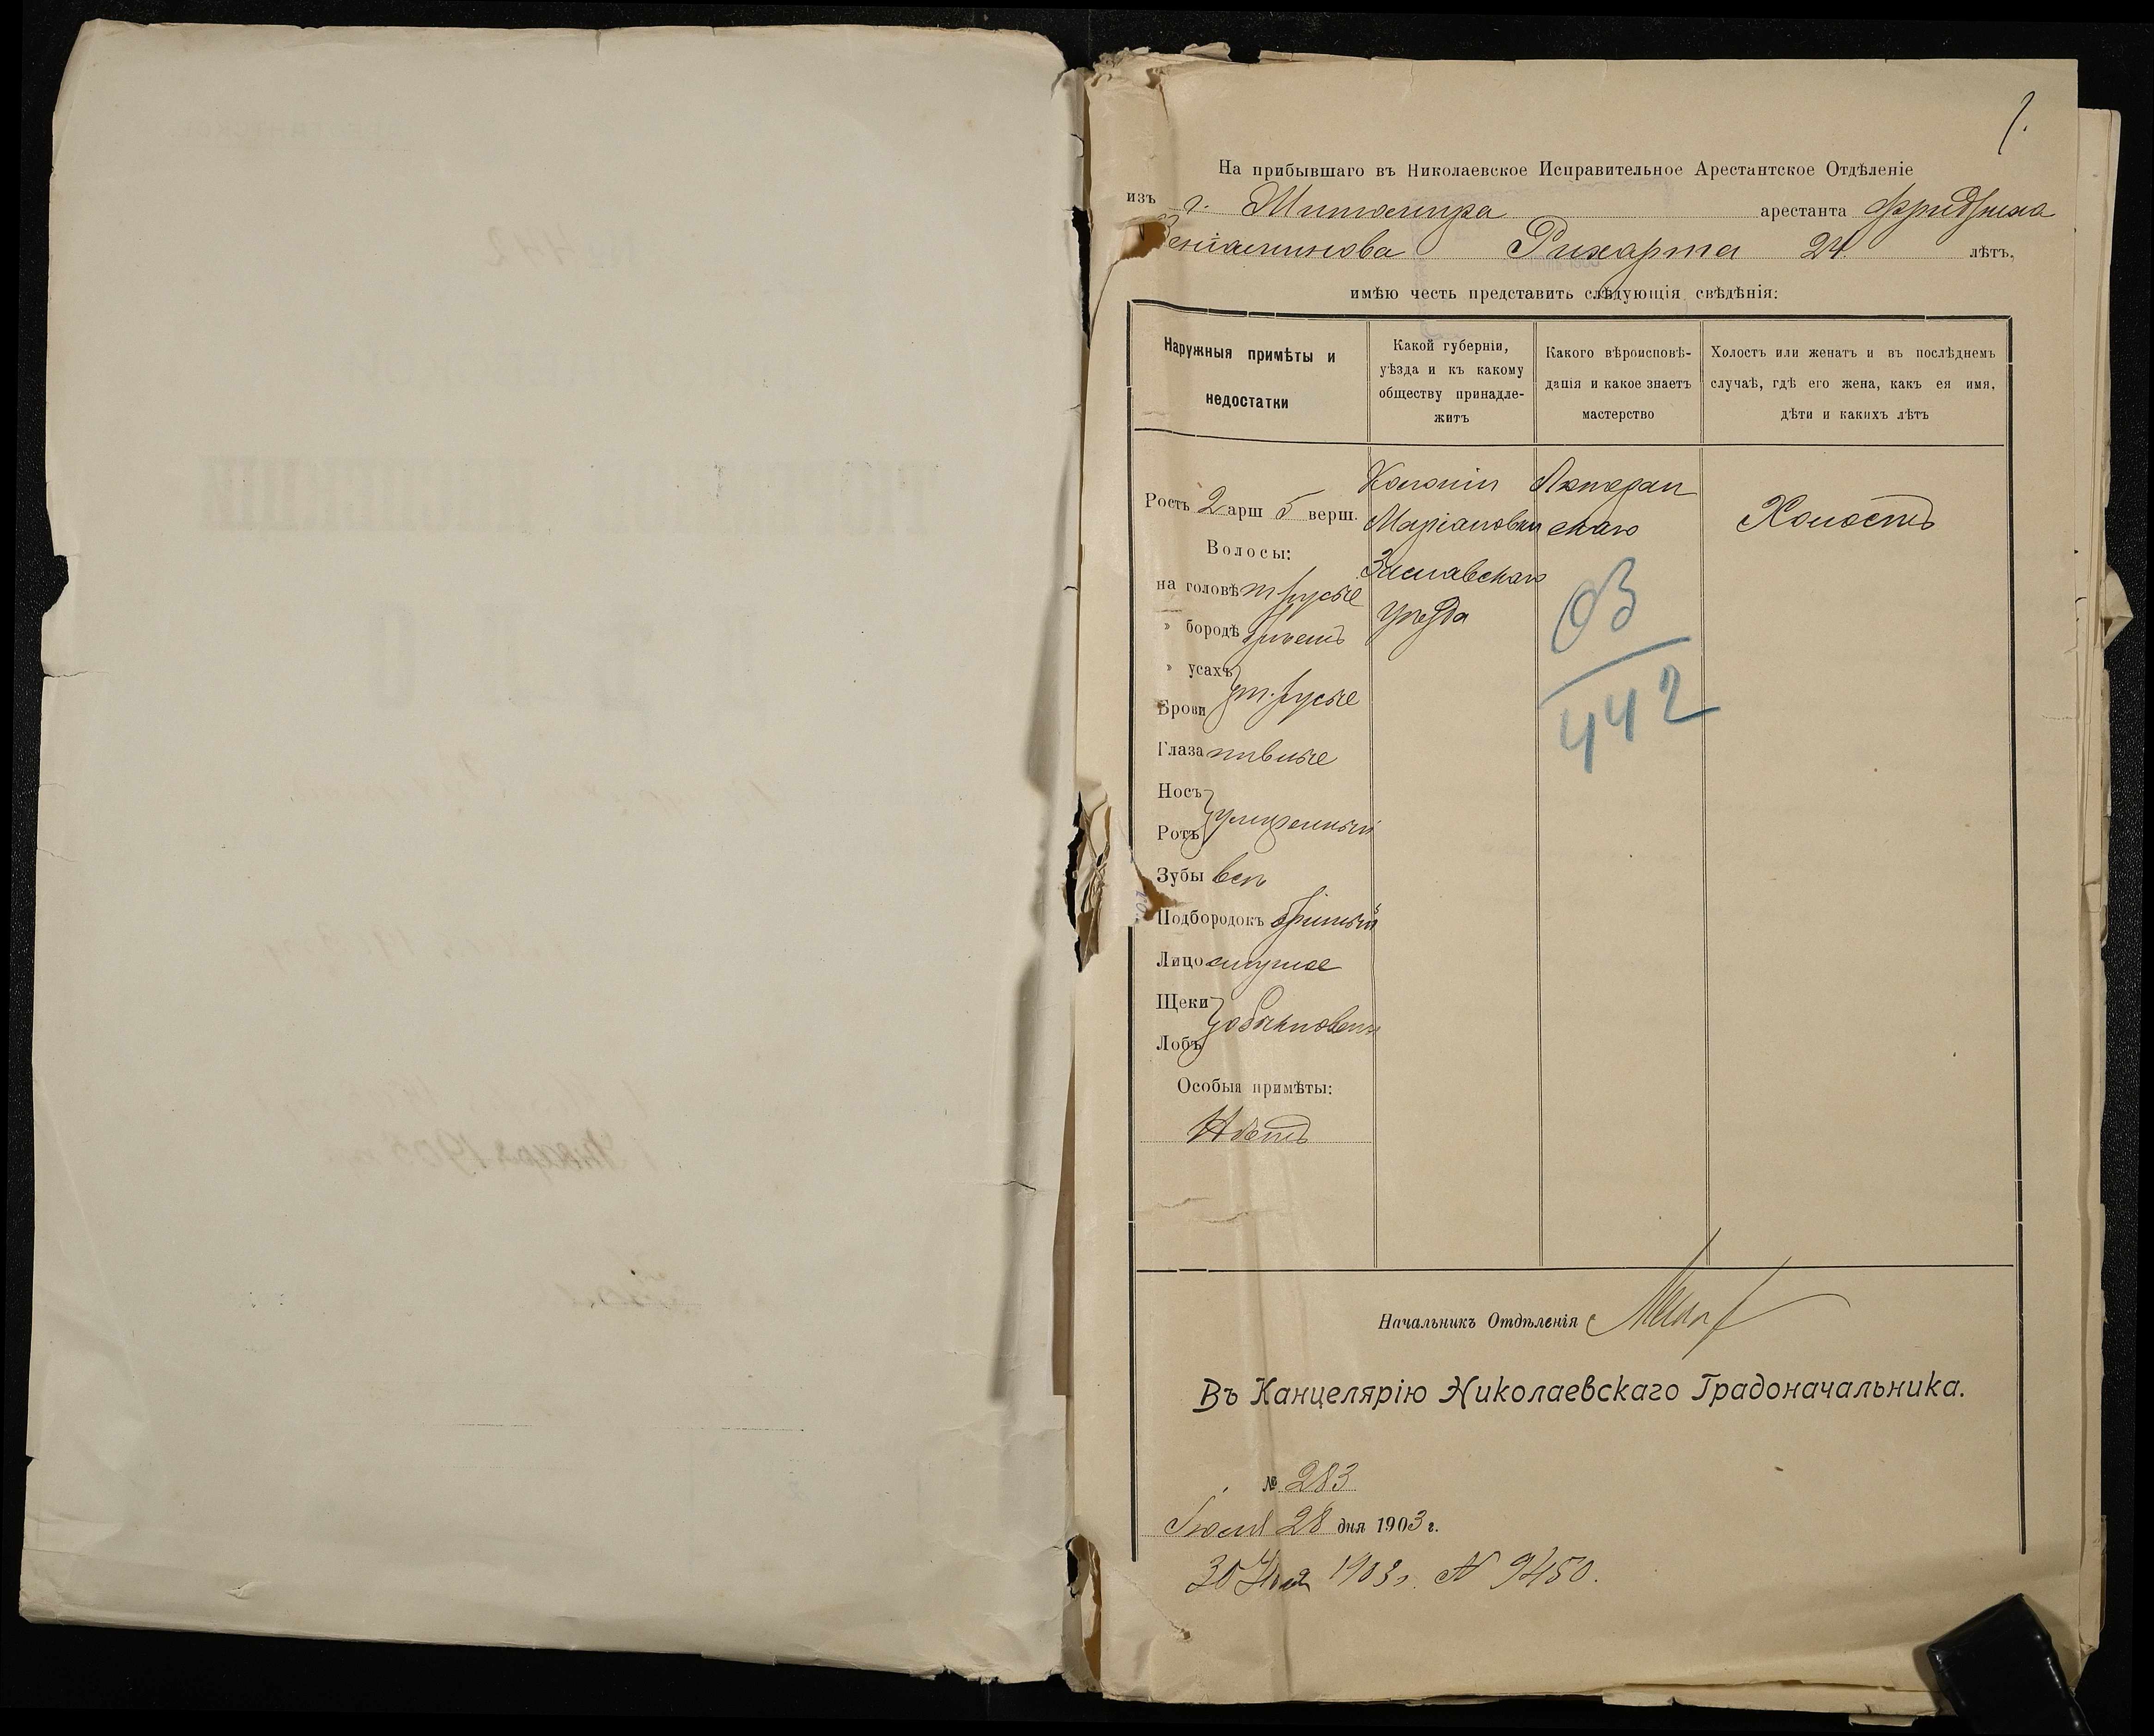 1.
На прибывшаго въ Николаевское Исправительное Арестантское Отдѣленіе
изъ г. Житомира арестанта Фридриха
Веніаминова Рихарта 24 лѣтъ,
имѣю честь представить слѣдующія свѣдѣнія:
Наружныя примѣты и
недостатки
Какой губерніи,
уѣзда и къ какому
обществу принадле-
житъ
Какого вѣроисповѣ-
данія и какое знаетъ
мастерство
Холостъ или женатъ и въ послѣднемъ
случаѣ, гдѣ его жена, какъ ея имя,
дѣти и какихъ лѣтъ
Ростъ 2 арш 5 верш.
Волосы:
на головѣ т русые
» бородѣ бреетъ
» усахъ
Брови т. русые
Глаза
Носъ
Ротъ умѣренный
Зубы всѣ
Подбородокъ бритый
Лицо смуглое
Щеки
Лобъ обыкновен
Особыя примѣты:
Нѣтъ
Колоніи
Маріановки
Заславскаго
уѣзда
Лютеран
скаго
03
442
Холостъ
Начальникъ Отдѣленія
Въ Канцелярію Николаевскаго Градоначальника.
№ 283
Іюля 28 дня 1903 г.
30 Іюля 1903 г. N 9450.